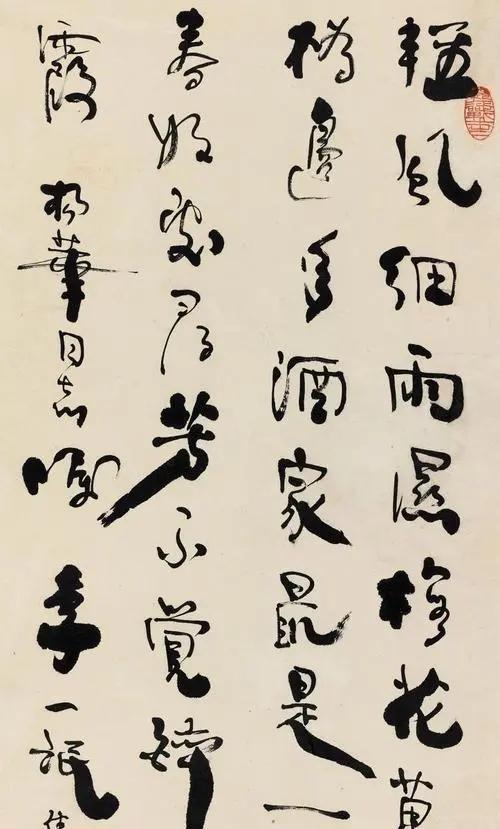 輕風細雨濕梅花
橋邊有酒家最是一
春好處尋芳不覺醉
霞 楊華同志囑 李一氓